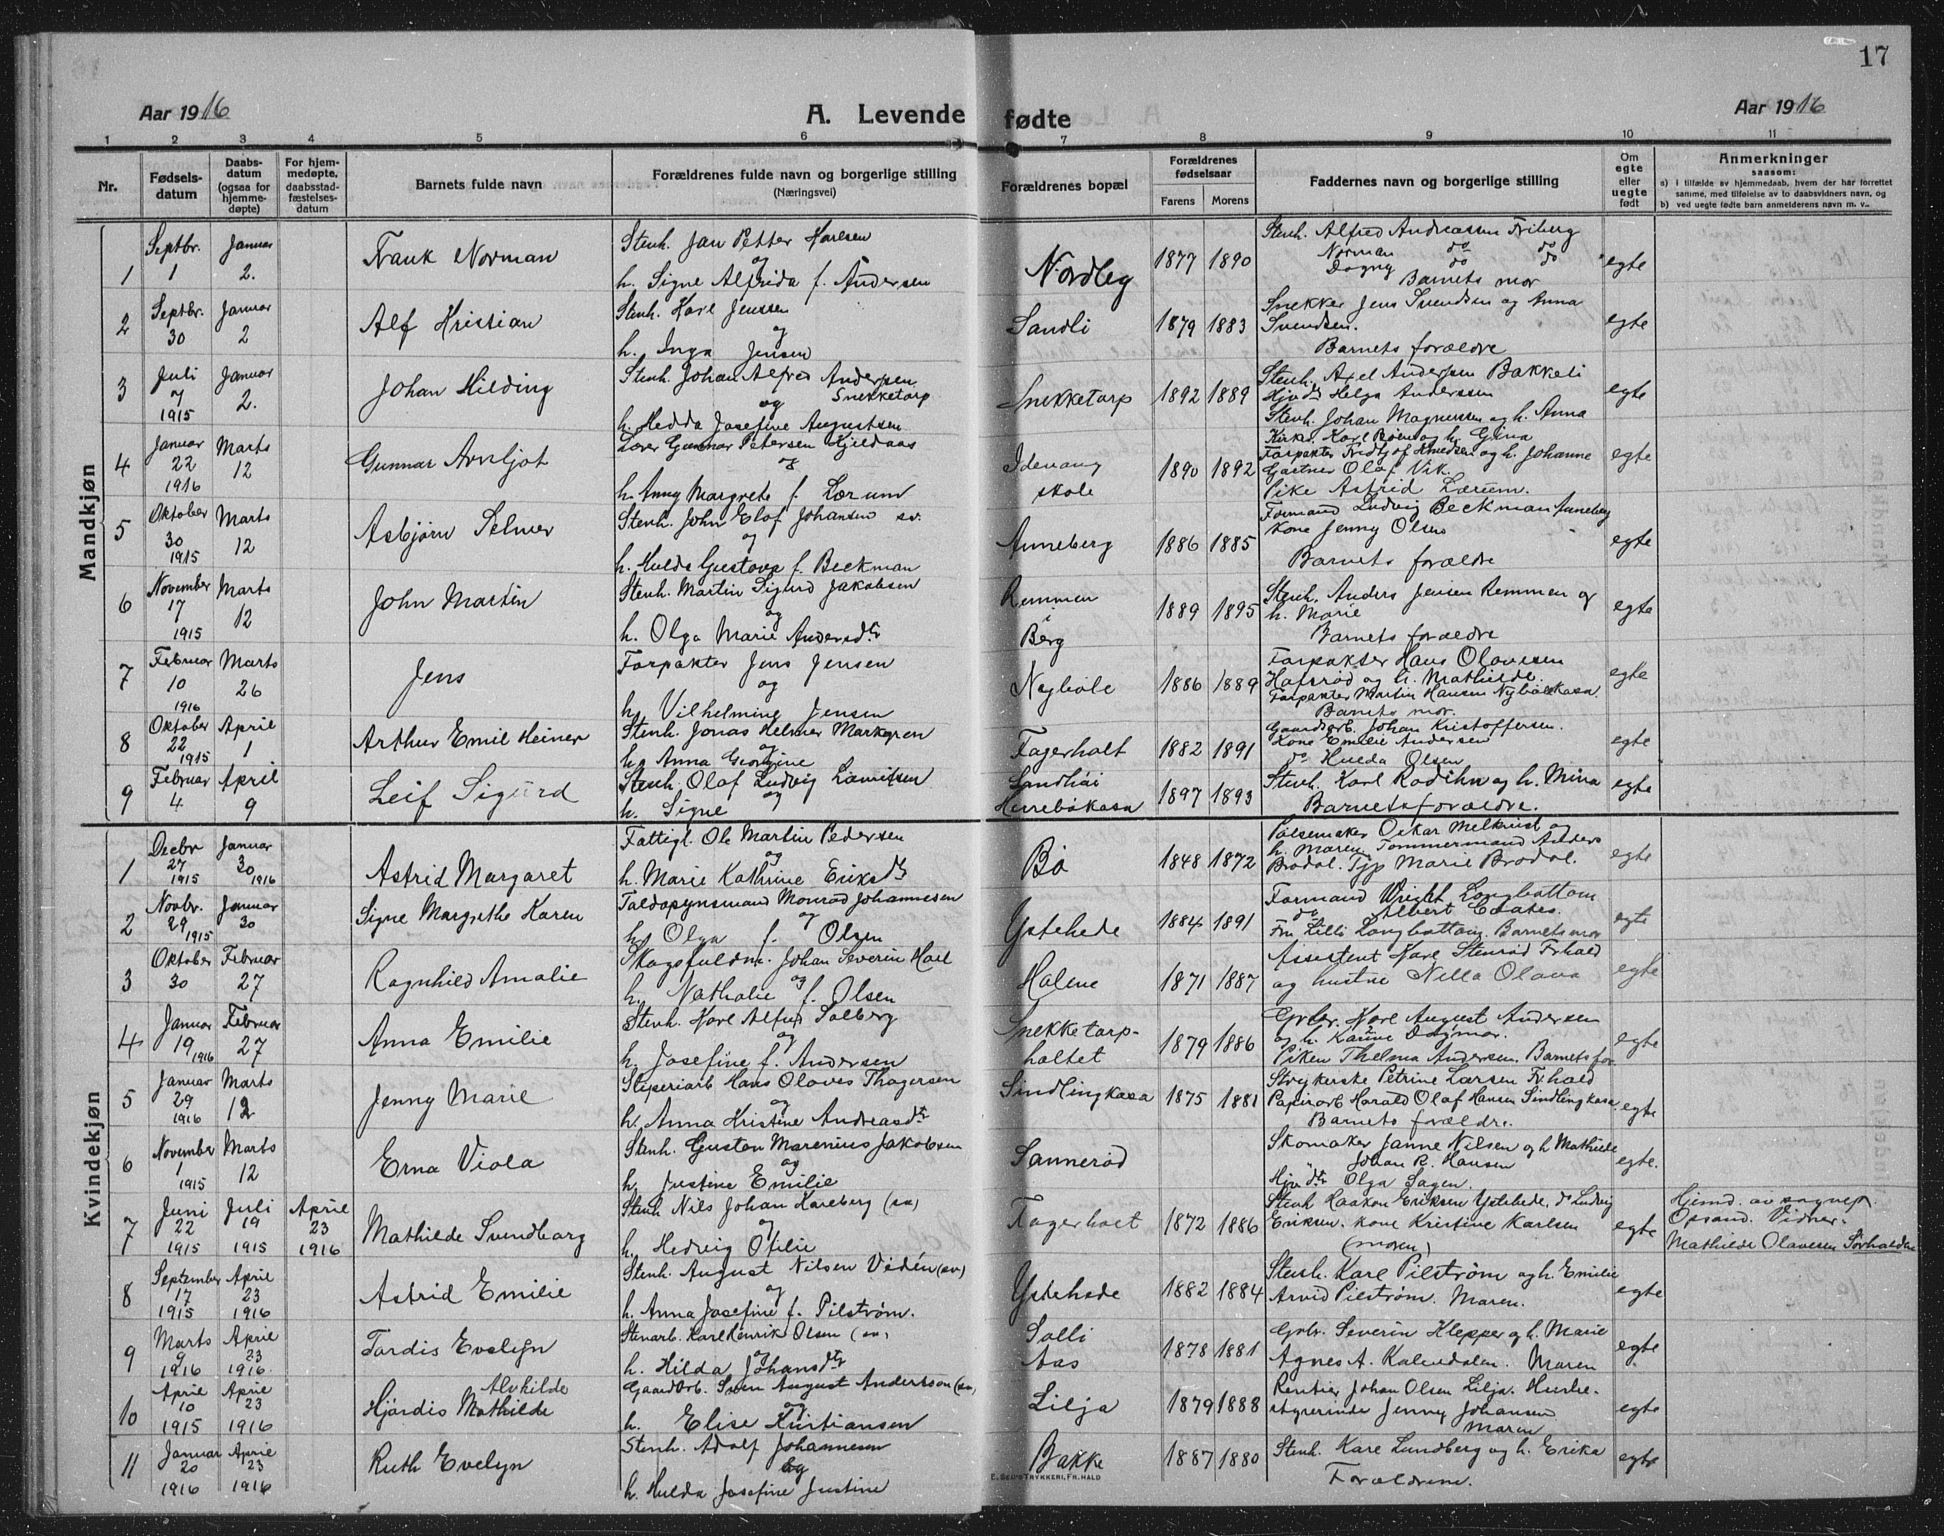 17
Aar 1916
A. Levende fødte
Aar 1916
1 2 3 4 5 6 7 8 9 10 11
Nr.
Fødsels-
datum
Daabs-
datum
(ogsaa for
hjemme-
døpte)
For hjem-
medøpte,
daabsstad-
fæstelses-
datum
Barnets fulde navn
Forældrenes fulde navn og borgerlige stilling
(Næringsvei)
Forældrenes bopæl
Forældrenes
fødselsaar
Farens Morens
Faddernes navn og borgerlige stilling
Om
egte
eller
uegte
født
Anmerkninger
saasom:
a) i tilfælde av hjemmedaab, hvem der har forrettet
samme, med tilføielse av to daabsvidners navn, og
b) ved uegte fødte barn anmelderens navn m. v..
Mandkjøn
1 Septbr. 1 Januar 2. Frank Norman
Stenh. Jan Petter Karlsen
og
h. Signe Alfrida f. Andersen
Nordleg 1877 1890
Stenh. Alfred Andreassen Friberg
Norman do do
Dagny do do
Barnets mor
egte
2 Septbr. 30 Januar 2 Alf Kristian
Stenh. Karl Jenssen
og
h. Inga Jensen
Sandli 1879 1883
Snekker Jens Svendsen og Anna
Svendsen.
Barnets forældre
egte
3 Juli 7 1915 Januar 2. Johan Hilding
Stenh. Johan Alfred Andersen
Snekketorp
og
h. Hedda Josefine Augustsen
Snekketorp 1892 1889
Stenh. Axel Andersen Bakkeli
Helga Anderssen
Stenh. Johan Magnussen og h. Anna
egte
4 Januar 22 1916 Marts 12 Gunnar Arnljot
Lærer Gunnar Petersen Kjeldaas
og
h. Anny Margrete f. Lærum
Idevang
skole
1890 1892
Karl Boen og h. Gina
Forpakter Fridtjof Knudsen og h. Johanne
Gartner Olaf Vik.
Pike Astrid Lærum.
egte
5 Oktober 30 1915 Marts 12 Asbjørn Selmer
Stenh. John Elof Johansen sv.
og
h. Hulda Gustava f. Beckman
Anneberg 1886 1885
Formand Ludvig Beckman Anneberg
Kone Jenny Olsen
Barnets forældre
egte
6 November 17 1915 Marts 12 John Martin
Stenh. Martin Sigurd Jakobsen
og
h. Olga Marie Andersdtr
Remmen
i
Berg
1889 1895
Stenh. Anders Jensen Remmen og
h. Marie
Barnets forældre
egte
7 Februar 10 1916 Marts 26 Jens
Forpakter Jens Jensen
og
h. Vilhelmine Jensen
Nybøle 1886 1889
Forpakter Hans Olavesen
Hafsrød og h. Mathilde.
Forpakter Martin Hansen Nybølekasa.
Barnets mor.
egte
8 Oktober 22 1915 April 1 Arthur Emil Heiner
Stenh. Jonas Helmer Markgren
og
h. Anna Georgine
Fagerholt 1882 1891
Gaardsarb. Johan Kristoffersen.
Kone Emilie Andersen
do Hulda Olsen
egte
9 Februar 4 April 9 Leif Sigurd
Stenh. Olaf Ludvig Lauritsen
og
h. Signe
1897 1893
Stenh. Karl Rodihn og h. Mina
Barnets forældre.
egte
Kvindekjøn
1 Decbr 27 1915 Januar 30 1916 Astrid Margaret
Fattigl. Ole Martin Pedersen
og
h. Marie Kathrine Eriksdtr
Bø 1848 1872
Pølsemaker Oskar Melkvist og
h. Maren, Tømmermand Anders
Brødal. Marie Brødal.
egte
2 Novbr. 29 1915 Januar 30 Signe Margrethe Karen
Toldopsynsmand Monrad Johannesen
og
h. Olga f. Olsen
Ystehede 1884 1891
Formand Wright Longbottom
do Albert Coates.
Fru Lilli Longbottom. Barnets mor
egte
3 Oktober 30 Februar 27 Ragnhild Amalie
Skogsfuldm. Johan Severin Hoel
og
h. Nathalie f. Olsen
Holene 1871 1887
Assistent Karl Stenrød Fr.hald
og hustru Nilla Olava
egte
4 Januar 19 1916 Februar 27 Anna Emilie
Stenh. Karl Alfred Solberg
og
h. Josefine f. Andersen
Snekketorp-
holtet
1879 1886
Grbr. Karl August Andersen
og h. Dagmar.
Piken Thelma Andersen. Barnets for
egte
5 Januar 29 1916 Marts 12 Jenny Marie
Sliperiarb Hans Olaves Thøgersen
og
h. Anna Kristine Andreasdtr
Sindlingkasa 1875 1881
Strykerske Petrine Larsen Fr.hald
Papirarb. Harald Olaf Hansen Sindlingkasa
Barnets forældre.
egte
6 November 1 1915 Marts 12 Erna Viola
Stenh. Gustav Marenius Jakobsen
og
h. Justine Emilie
Sannerød
Skomaker Janne Nilsen og h Mathilde
Johan R. Hansen
Olga Sagen.
egte.
7 Juni 22 1915 Juli 19 1915 April 23 1916 Mathilde Svendborg
Stenh Nils Johan Kareberg (sv)
og
h. Hedvig Otilie
Fagerholt 1872 1886
Stenh Haakon Eriksen Ystehede, do Ludvig
Eriksen. kone Kristine Karlsen
(moren)
egte
Hjemd. av sognep.
Opsand. Vidner:
Mathilde Olavesen Sørhalden
8 September 17 1915 April 23 1916 Astrid Emilie
Stenh. August Nilsen Vidén (sv)
og
h. Anna Josefine f. Pilstrøm.
Ystehede 1882 1884
Stenh. Karl Pilstrøm og h. Emilie
Arvid Pilstrøm. Moren.
egte
9 Marts 9 1916 April 23 1916. Tordis Evelyn
Stenarb. Karl Henrik Olsen (sv)
og
h. Hilda Johansdtr
Solli
Aas
1878 1881
Grbr. Severin Klepper og h. Marie
Agnes A. Moren
egte
10 April 10 1915 April 23 1916 Hjørdis Alvhilde Mathilde
Gaardarb. Sven August Andersson (sv)
og
h. Elise Kristiansen
Lilja 1879 1888
Rentier Johan Olsen Lilja. Hushe-
styrerinde Jenny Johansen
Moren
egte
11 Januar 20 1916 April 23 1916 Ruth Evelyn
Stenh. Adolf Johannesen
og
h. Hulda Josefine Justine
Bakke 1887 1880
Stenh. Karl Lundberg og h. Erika
Forældrene.
egte
E. Sem's Trykkeri, Fr.hald